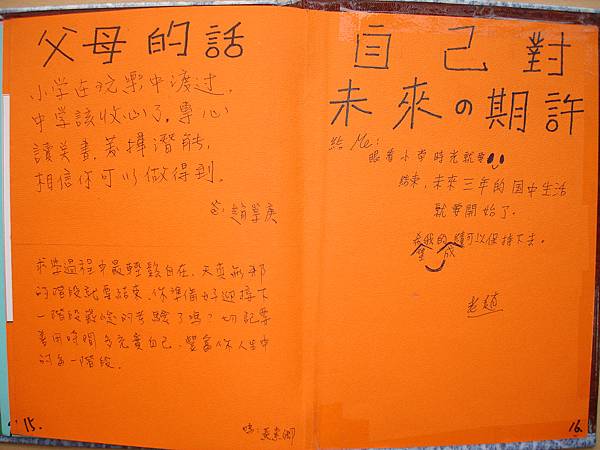 父母的話
小学在玩樂中渡过,
中学該收心了。專心
讀美書,善揮潛能,
相信你可以做得到。
爸:趙
求學過程中最輕鬆自在、天真無邪
的階段就要結束,你準備好迎接下
一階段艱的考驗了嗎?切記要
善用時間多充實自己,豐富你人生中
的每一階段。
媽:
15.
自己對
未來の期許
給 Me:
眼看小學時光就要
結束,未來三年的国中生活
就要開始了。
希我的成績可以保持下去。
老趙
16.